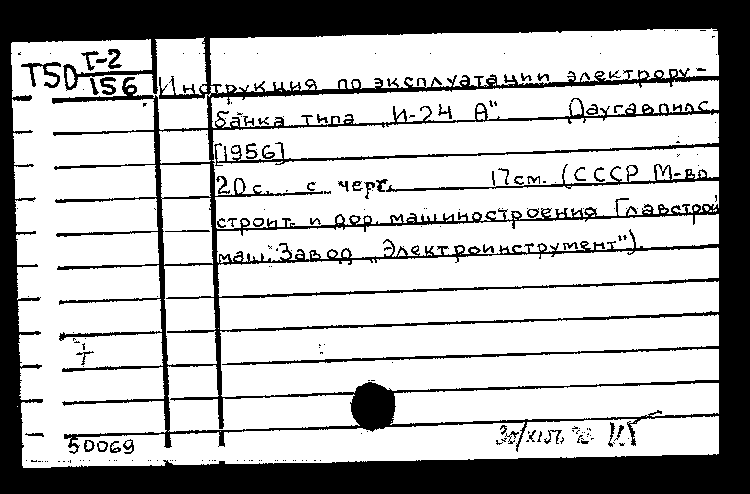 Т50 Т-2
156
Инструкция по эксплуатации электрору-
банка типа „И-24 А". Даугавпилс,
[1956]
20 с. с черт. 17 см. (СССР М-во
строит. и дор. машиностроения Главстрой
маш. Завод „Электроинструмент").
7
50069
30/XI 56